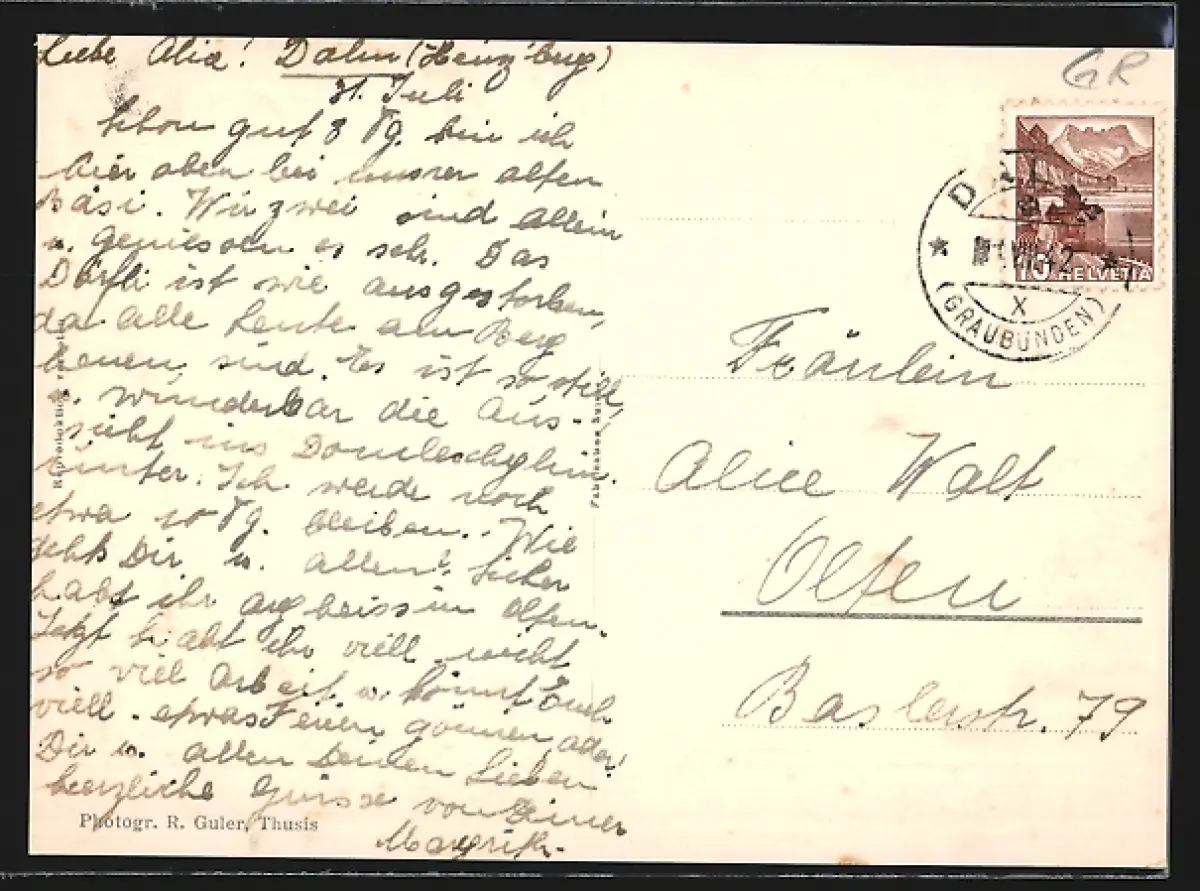 Liebe Alice! Dalin (Heinz'berg)
31. Juli
Schon gut 8 Tg. bin ich
hier oben bei unsrer alten
Bäsi. Wir zwei sind allein
u. geniessen es sehr. Das
Dörfli ist wie ausgestorben,
da alle Leute am Berg
heuen sind. Es ist so still,
u. wunderbar die Aus-
sicht ins Domleschg hin-
unter. Ich werde noch
etwa 10 Tg. bleiben. Wie
gehts Dir u. allen? Sicher
habt ihr arg heiss in Olten.
Jetzt habt ihr viell. nicht
so viel Arbeit u. könnt Euch
viell. etwas Ferien gönnen, oder?
Dir u. allen Deinen Lieben
herzliche Grüsse von Deiner
Margrith.
Photogr. R. Guler, Thusis
GR
10 HELVETIA
VIII.42
X
(GRAUBÜNDEN)
Fräulein
Alice Walt
Olten
Baslerstr. 79